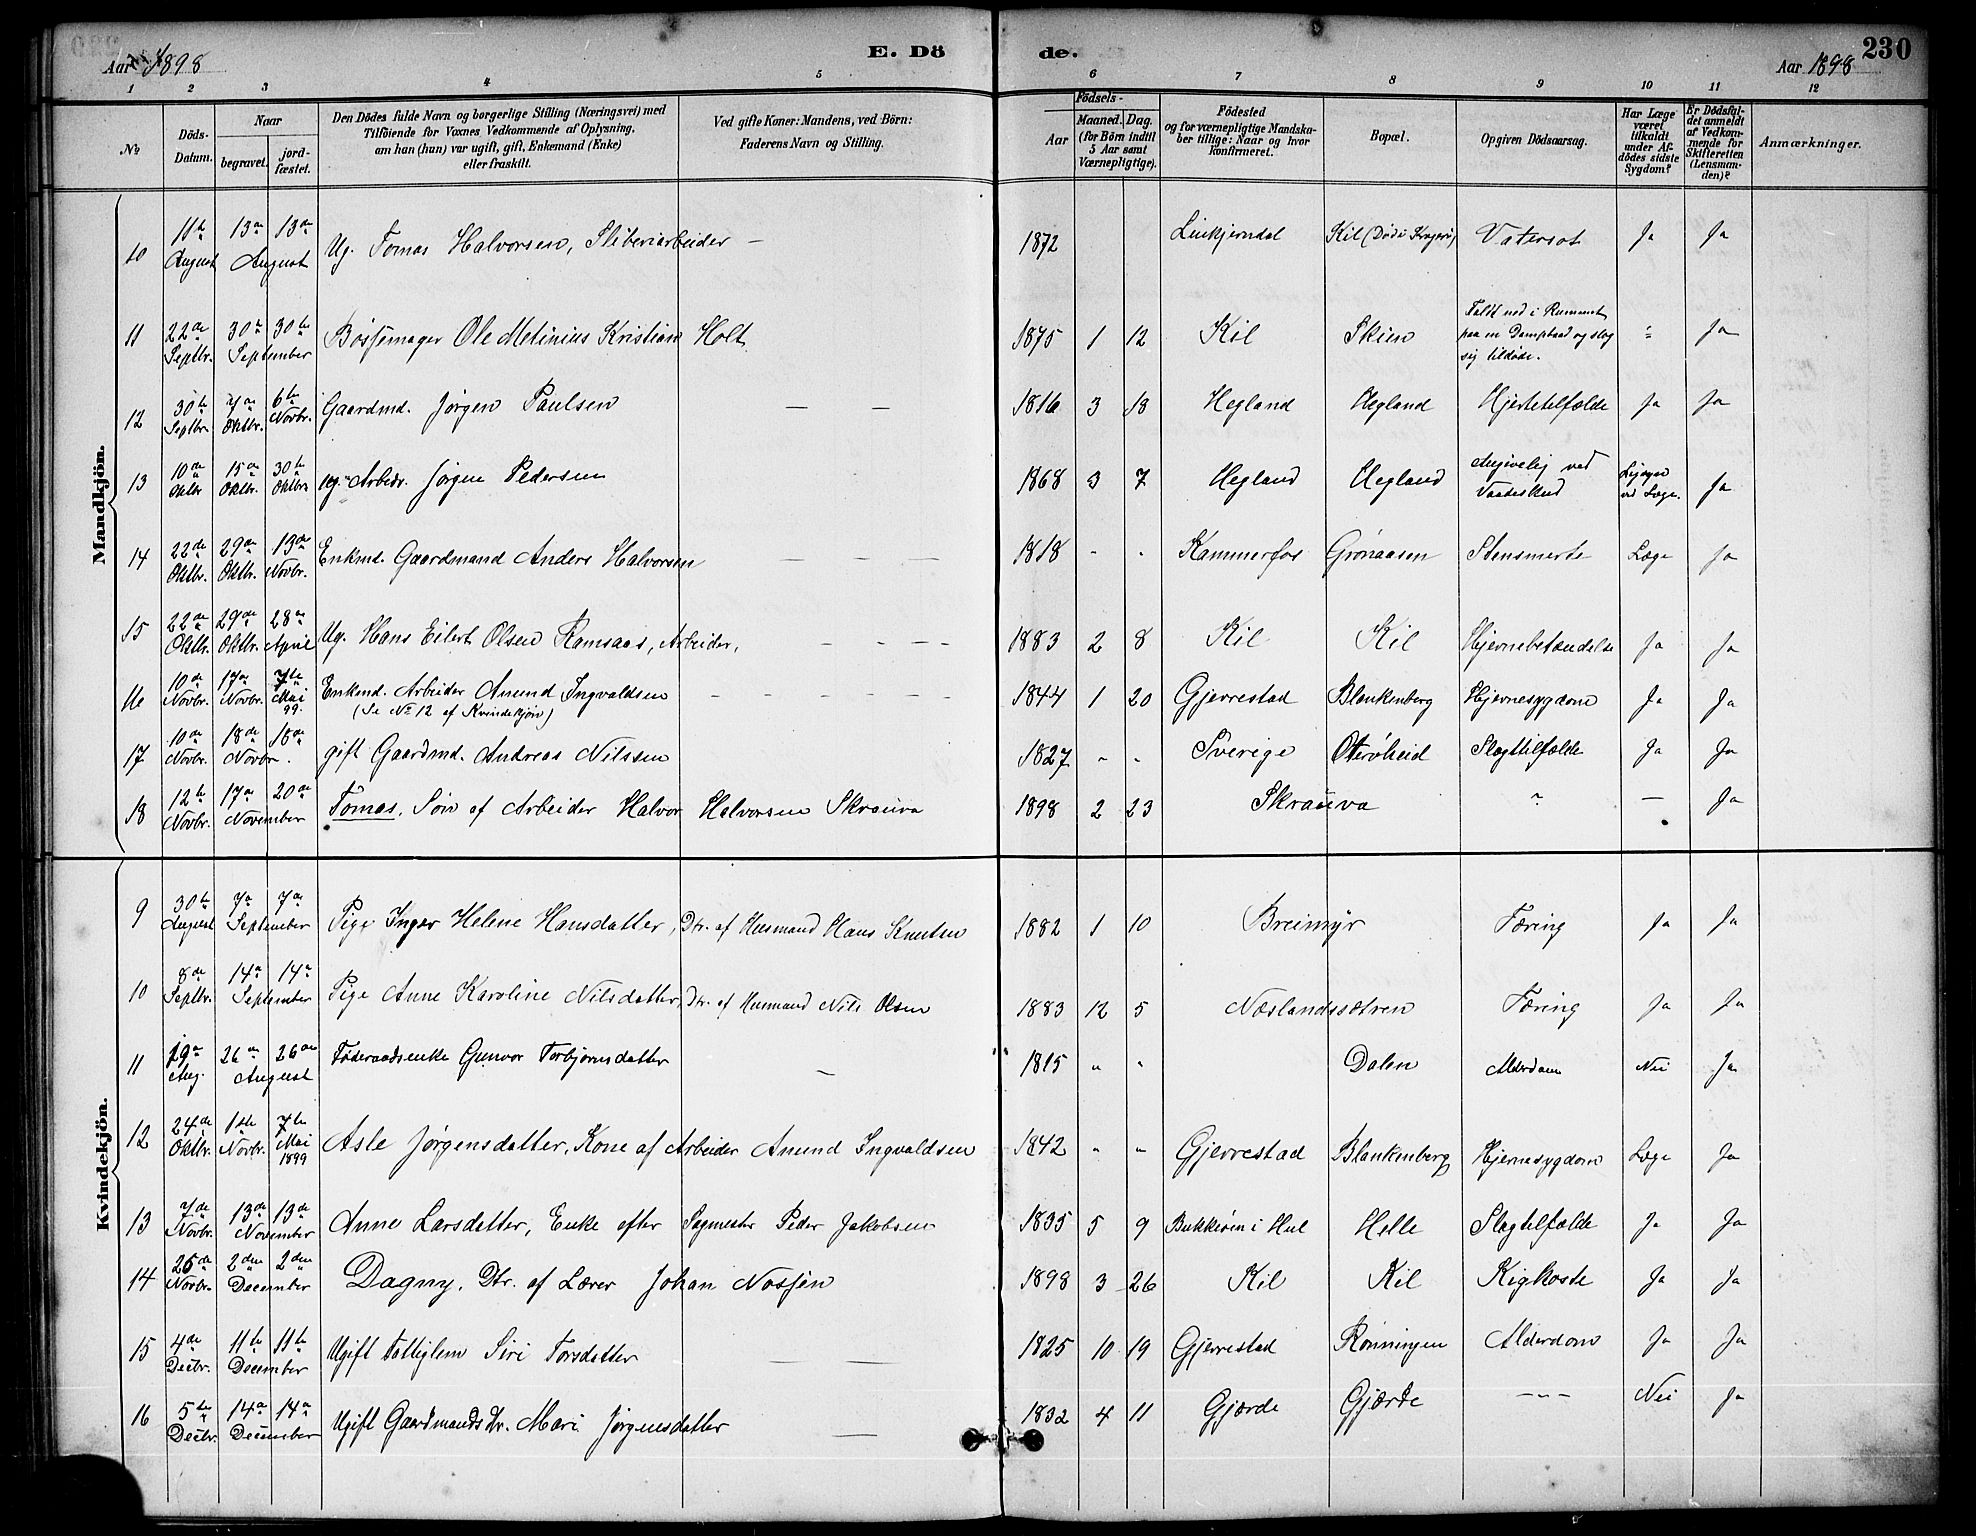 Aar 1898 E. Döde. Aar 1898 230
1 2 3 4 5 6 7 8 9 10 11 12
№
Döds-Datum.
Naar
begravet.
jordfæstet.
Den Dödes fulde Navn og borgerlige Stilling (Næringsvei) med
Tilföiende for Voxnes Vedkommende af Oplysning,
om han (hun) var ugift, gift, Enkemand (Enke)
eller fraskilt.
Ved gifte Koner: Mandens, ved Börn:
Faderens Navn og Stilling.
Födsels-
Aar
Maaned. Dag.
(for Börn indtil
5 Aar samt
Værnepligtige).
Födested
og for værnepligtige Mandska-
ber tillige: Naar og hvor
konfirmeret.
Bopæl.
Opgiven Dödsaarsag.
Har Læge
været
tilkaldt
under Af-
dödes sidste
Sygdom?
Er Dödsfal-
det anmeldt
af Vedkom-
mende for
Skifteretten
(Lensman-
den)?
Anmærkninger.
Mandkjön.
10 11te August 13de 13de August Ug. Tomas Halvorsen, Sliberiarbeider — 1872 Kil (Död i Kragerø) Vatersot Ja Ja
11 22de Septbr. 30te 30te September Bøssemager Ole Metinius Kristian Holt 1875 1 12 Kil Skien Faldt ned i Rummet
paa en Dampbaad og slog
sig tildøde. Ja
12 30te Septbr. 7de Oktbr. 6te Novbr. Gaardmd. Jørgen Paulsen — — 1816 3 18 Hegland Hegland Hjertetilfælde Ja Ja
13 10de Oktbr 15de Oktbr. 30te Oktbr. ug. Arbdr. Jørgen Pedersen 1868 3 7 Hegland Hegland Angivelig ved
Vaadeskud Ligsyn
ved Læge. Ja
14 22de Oktbr. 29de Oktbr. 13de Novbr. Enkmd. Gaardmand Anders Halvorsen — — — 1818 - - Kammerfos Grønaasen Stensmerte Læge Ja
15 22de Oktbr. 29de Oktbr. 28de April Ug. Hans Eilert Olsen Ramsaas, Arbeider, — — — — 1883 2 8 Kil Kil Hjernebetændelse Ja Ja
16 10de Novbr. 17de Novbr. 7de Mai 99. Enkmd. Arbeider Anund Ingvaldsen — — — — — — 1844 1 20 Gjerrestad Blankenberg Hjernesygdom Ja Ja
(Se № 12 af Kvindekjøn)
17 10de Novbr. 18de 18de Novbr. gift Gaardmd. Andreas Nilssen 1827 " " Sverige Oterøheid Slagtilfælde Ja Ja
18 12te Novbr. 17de 20de November Tomas. Søn af Arbeider Halvor Halvorsen Skrauva 1898 2 23 Skrauva " — Ja
Kvindekjön.
9 30te August 7de 7de September Pige Inger Helene Hansdatter, Dtr. af Husmand Hans Knutsen 1882 1 10 Breimyr Tæring Ja Ja
10 8de Septbr. 14de 14de September Pige Anne Karoline Nilsdatter, Dtr. af Husmand Nils Olsen 1883 12 5 Næslandssætren Tæring Ja Ja
11 19de Aug. 26de 26de August Føderaadsenke Gunvor Torbjørnsdatter — 1815 " " Dalen Alderdom Nei Ja
12 24de Oktbr. 1ste Novbr. 7de Mai 1899 Asle Jørgensdatter, Kone af Arbeider Anund Ingvaldsen 1842 " " Gjerrestad Blankenberg Hjernesygdom Læge Ja
13 7de Novbr. 13de 13de November Anne Larsdatter, Enke efter Sagmester Peder Jakobsen 1835 5 9 Helle Slagtilfælde Ja Ja
14 25de Novbr. 2den 2den December Dagny, Dtr. af Lærer Johan Nosjøn 1898 3 26 Kil Kil Kighoste Ja Ja
15 4de Decbr. 11te 11te December Ugift Fattiglem Siri Torsdatter — — 1825 10 19 Gjerrestad Rønningen Alderdom Ja Ja
16 5te Decbr. 14de 14de December Ugift Gaardmands Dtr. Mari Jørgensdatter — 1832 4 11 Gjærde Gjærde - " - Nei Ja